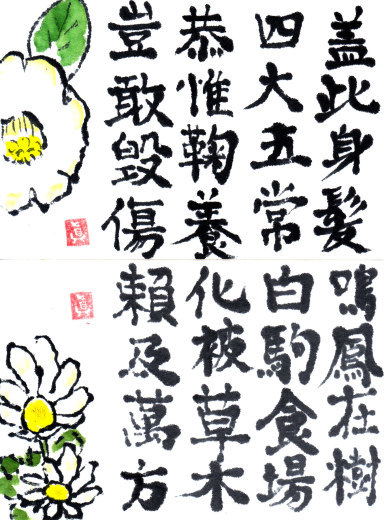 盖此身髮
四大五常
恭惟鞠養
豈敢毀傷
眞
鳴鳳在樹
白駒食場
化被草木
賴及萬方
眞